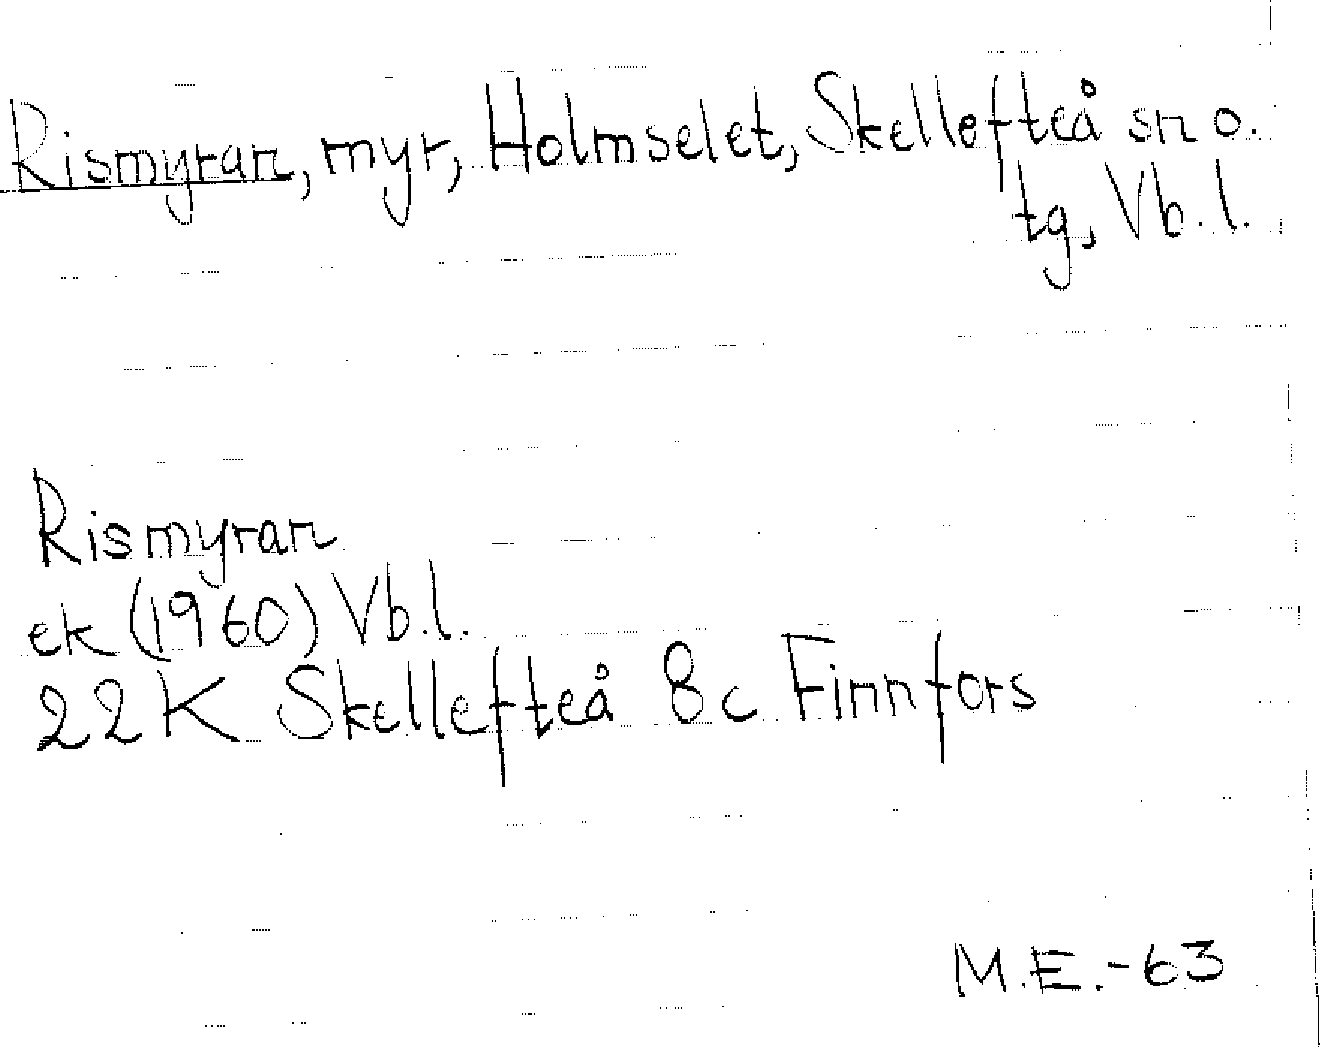 Rismyran, myr, Holmselet, Skellefteå sn o.
tg, Vb.l.
Rismyran
ek (1960) Vb.l.
22K Skellefteå 8c Finnfors
M.E.-63